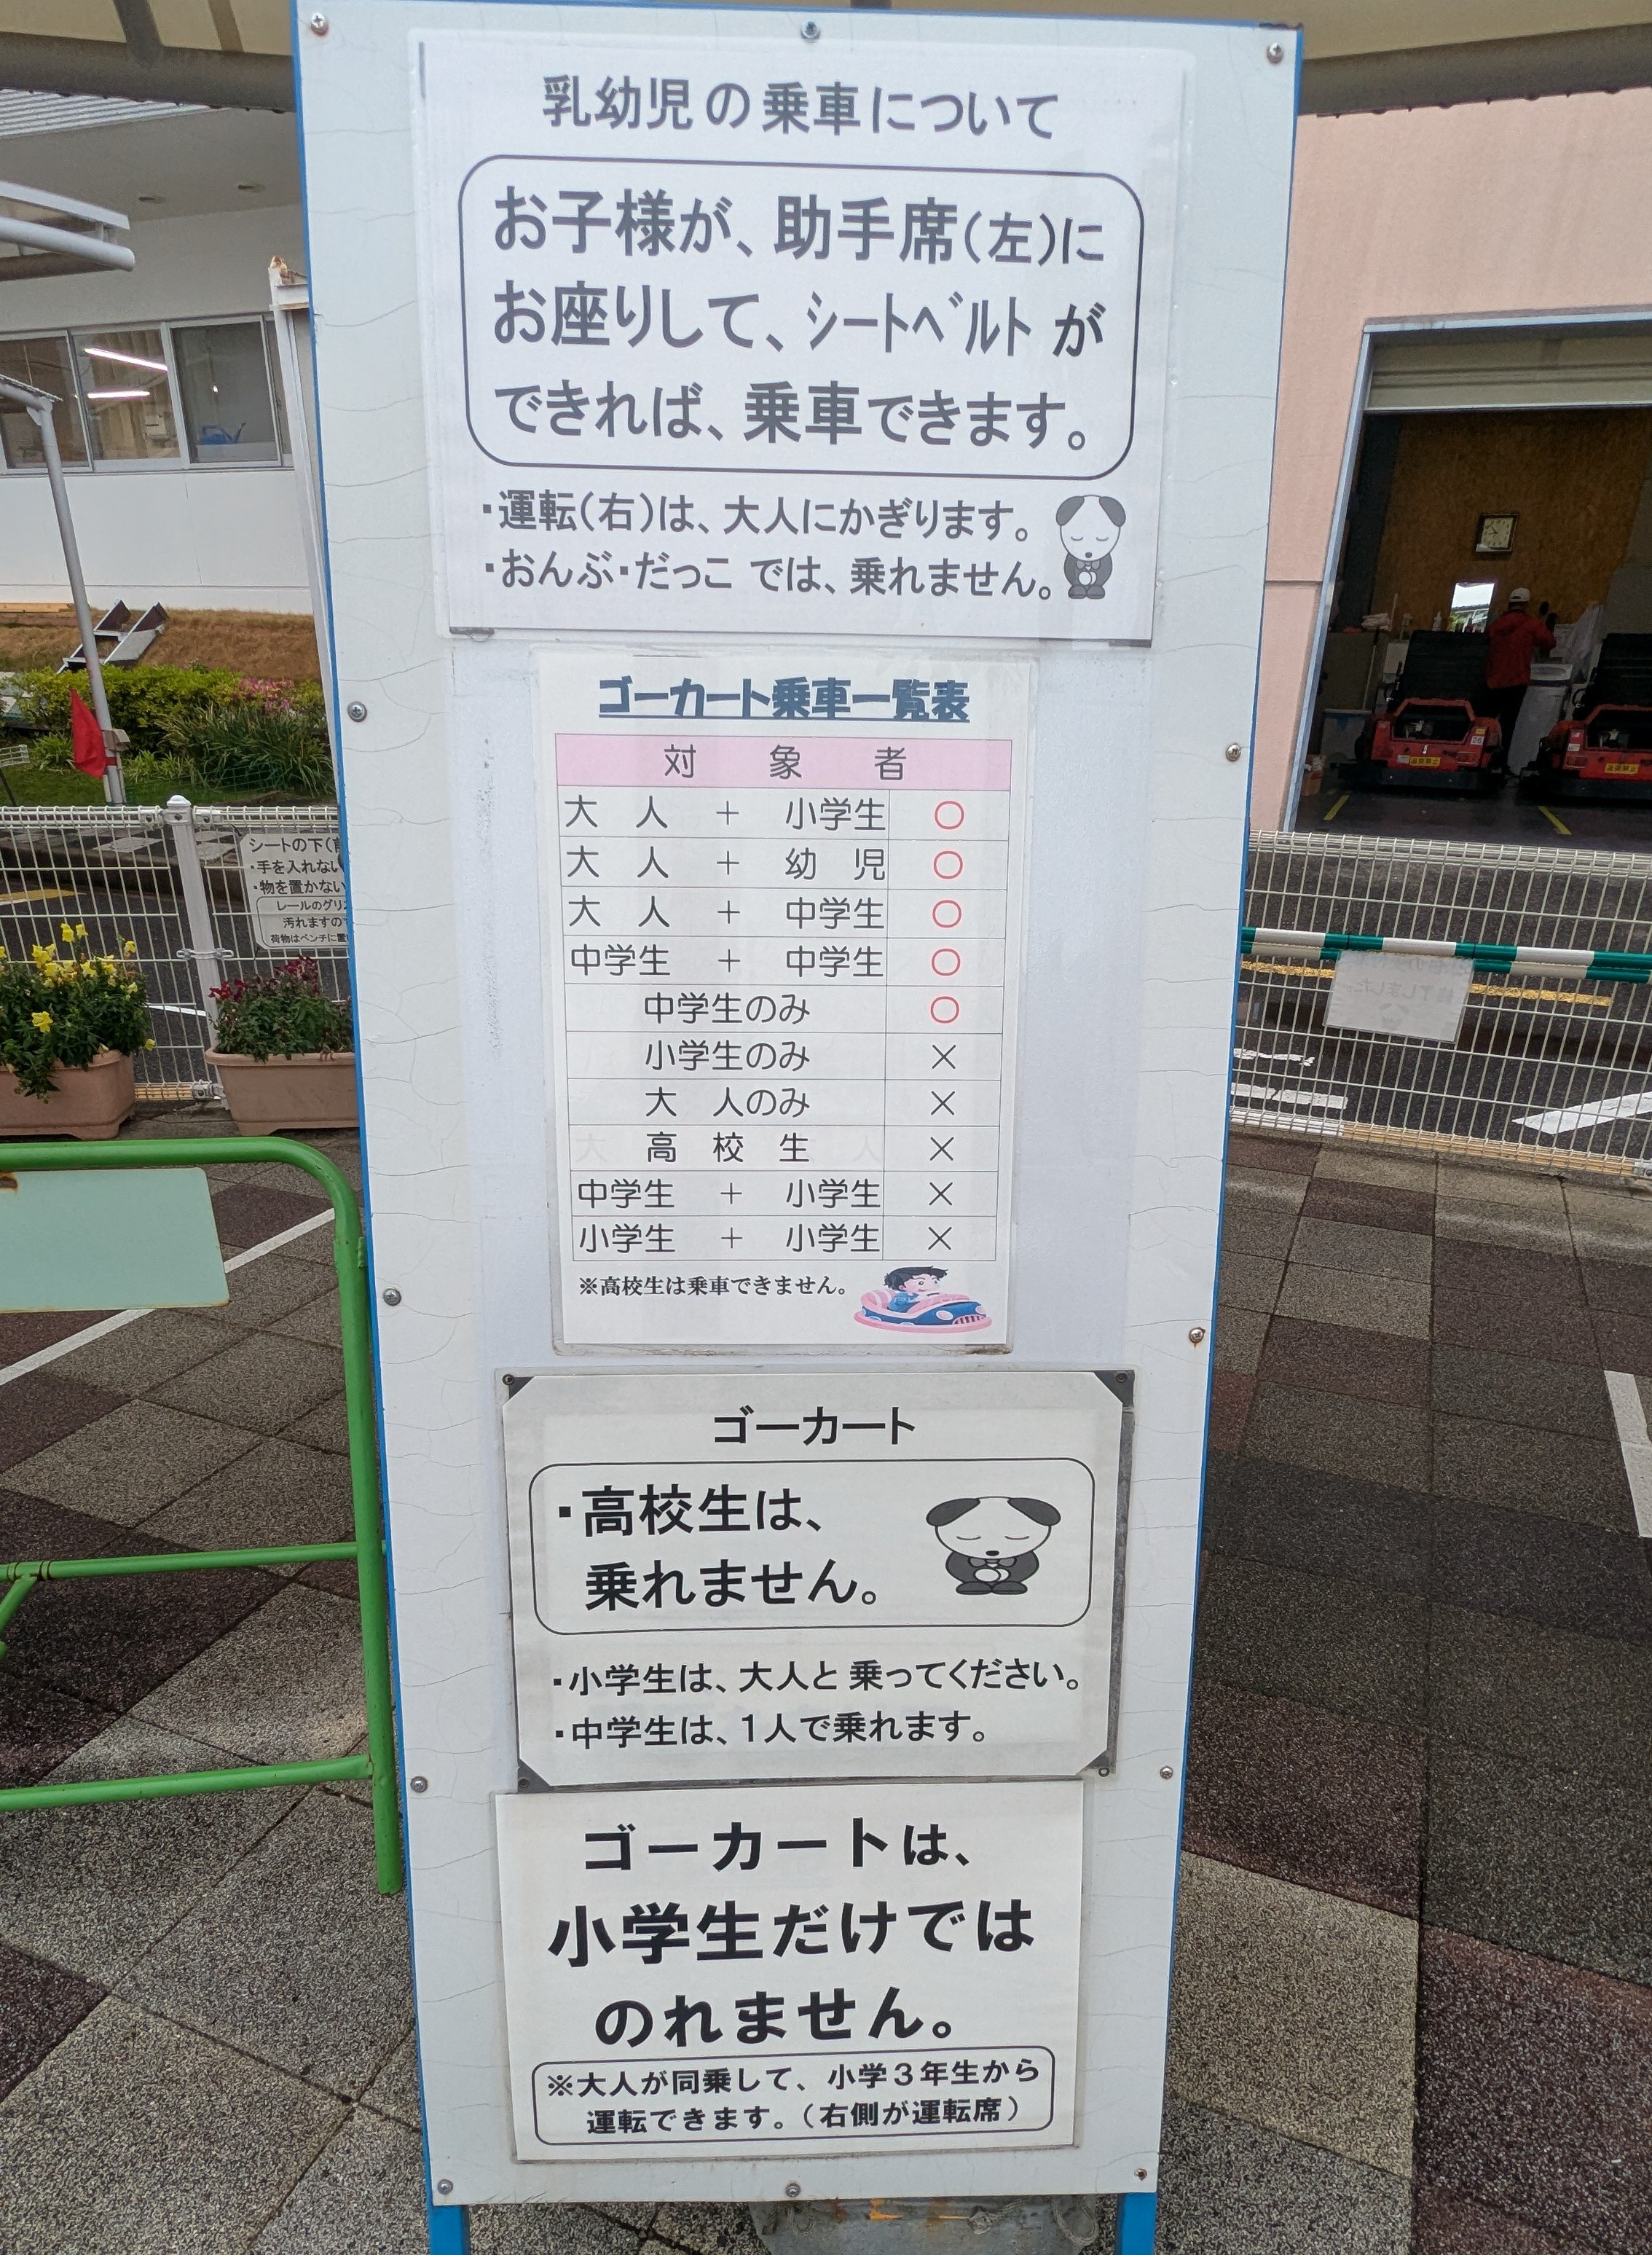 乳幼児の乗車について
お子様が、助手席(左)に
お座りして、シートベルトが
できれば、乗車できます。
・運転(右)は、大人にかぎります。
・おんぶ・だっこ では、乗れません。
ゴーカート乗車一覧表
対 象 者
大 人 + 小学生 ○
大 人 + 幼 児 ○
大 人 + 中学生 ○
中学生 + 中学生 ○
中学生のみ ○
小学生のみ ×
大 人のみ ×
高 校 生 ×
中学生 + 小学生 ×
小学生 + 小学生 ×
※高校生は乗車できません。
ゴーカート
・高校生は、
乗れません。
・小学生は、大人と 乗ってください。
・中学生は、1人で乗れます。
ゴーカートは、
小学生だけでは
のれません。
※大人が同乗して、小学3年生から
運転できます。(右側が運転席)
シートの下(
・手を入れない
・物を置かない
レールのグリ
汚れますの
荷物はベンチに置